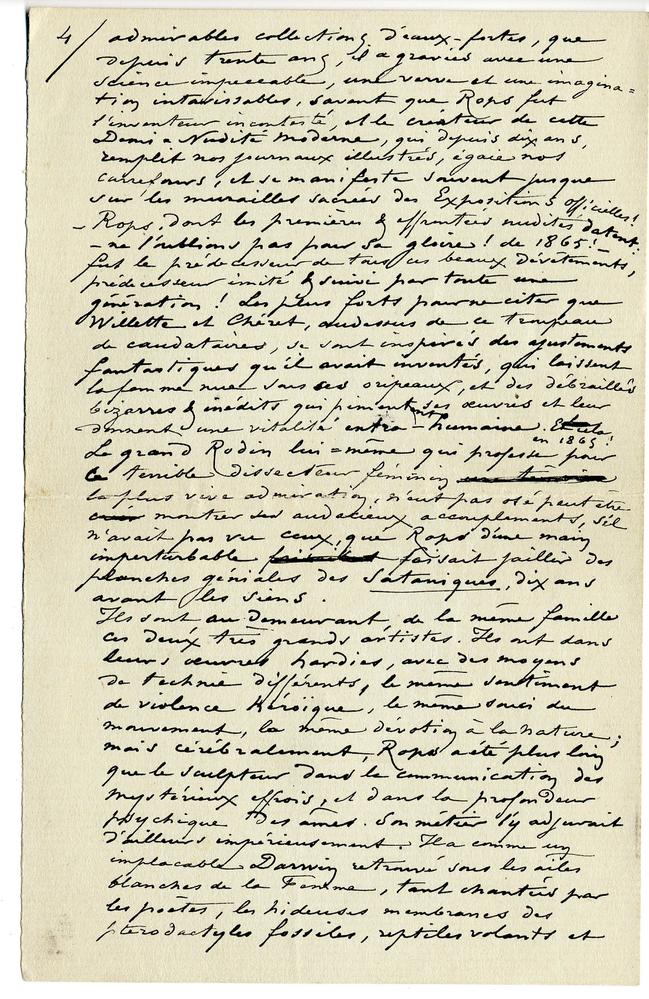 4/ admirables collections d'eaux-fortes, que
depuis trente ans, il a gravées avec une
science impeccable, une verve et une imagina=
tion intarissables, savent que Rops fut
l'inventeur incontesté, et le créateur de cette
Demi-Nudité Moderne, qui depuis dix ans,
remplit nos journaux illustrés, égaie nos
carrefours, et se manifeste souvent jusque
sur les murailles sacrées des Expositions officielles!
– Rops, dont les premières & effrontées nudités datent
– ne l'oublions pas pour sa gloire! de 1865!
fut le prédécesseur de tous ces beaux dévêtements,
prédécesseur imité & suivi par toute une
génération! Les plus forts pour ne citer que
Willette et Chéret, audessus de ce troupeau
de caudataires, se sont inspirés des ajustements
fantastiques qu'il avait inventés, qui laissent
la femme nue sous ses oripeaux, et des débraillés
bizarres & inédits qui pimentent ses œuvres et leur
donnent une vitalité extra-humaine. Et cela!
en 1865
Le grand Rodin lui=même qui professe pour
ce terrible dissecteur féminin
la plus vive admiration, n'eut pas osé peut être
montrer ses audacieux accouplements, s'il
n'avait pas vu ceux, que Rops d'une main
imperturbable faisait jaillir des
planches géniales des Sataniques, dix ans
avant les siens.
Ils sont au demeurant, de la même famille
ces deux très grands artistes. Ils ont dans
leurs œuvres hardies, avec des moyens
de technie différents, le même sentiment
de violence héroïque, le même souci du
mouvement, la même dévotion à la nature;
mais cérébralement, Rops a été plus loin
que le sculpteur dans la communication des
mystérieux effrois, et dans la profondeur
psychique des âmes. Son métier l'y adjurait
d'ailleurs impérieusement. Il a comme un
implacable Darwin retrouvé sous les ailes
blanches de la Femme, tant chantées par
les poètes, les hideuses membranes des
ptérodactyles fossiles, reptiles volants et